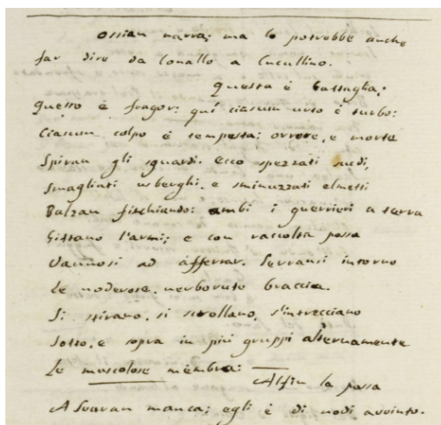 Ossian narra; ma lo potrebbe anche
far dire da Conallo a Cucullino.
Questa è battaglia;
Questo è fragor: quì ciascun urto è turbo:
Ciascun colpo è tempesta: orrore, e morte
Spiran gli sguardi. ecco spezzati scudi,
Smagliati usberghi, e sminuzzati elmetti
Balzan fischiando: ambi i guerrieri a terra
Gittano l'armi; e con raccolta possa
Vannosi ad afferrar. Serransi intorno
Le noderose, nerborute braccia.
Si stirano, si scrollano, s'intrecciano
Sotto, e sopra in più gruppi alternamente
Le muscolose membra:
Alfin la possa
A Svaran manca; egli è di nodi avvinto.